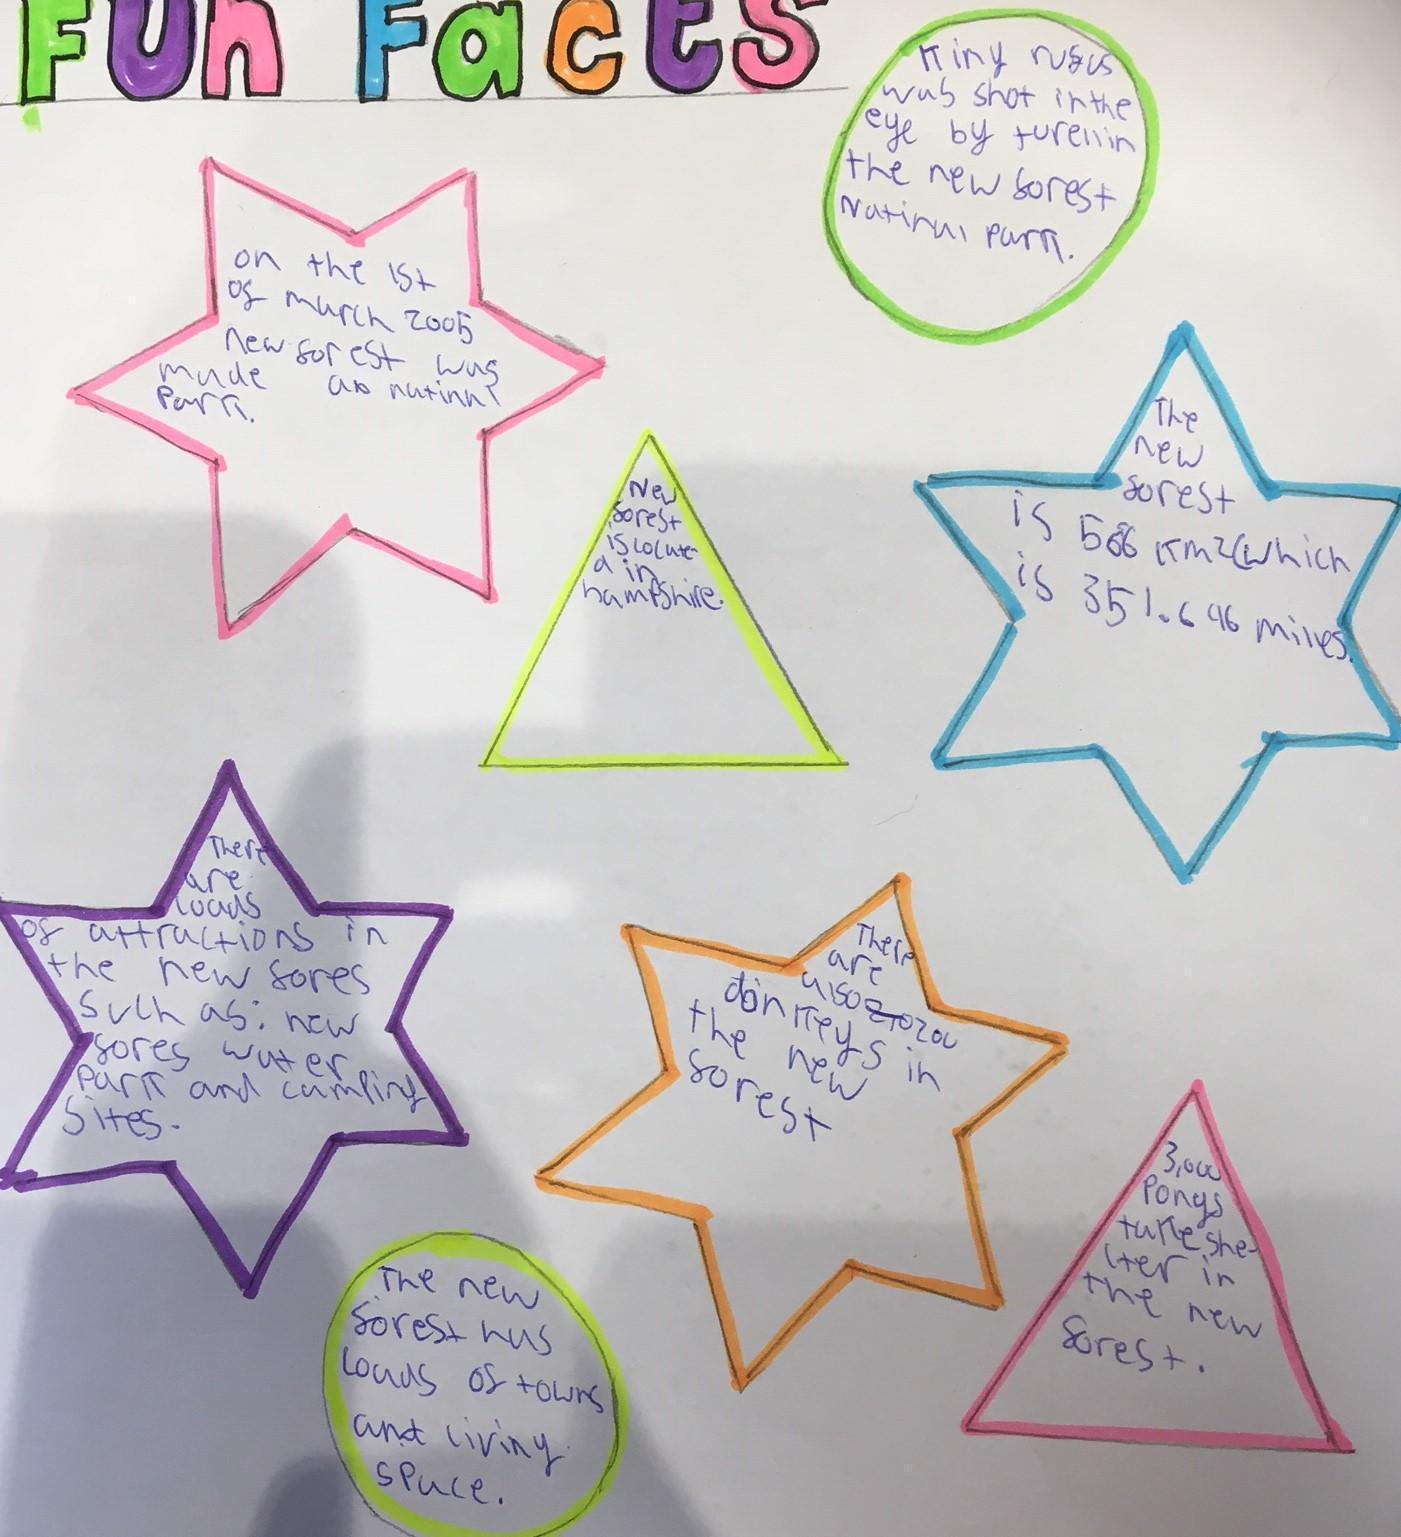 Fun Facts
King rufus
was shot in the
eye by turell in
the new forest
Natinal park.
on the 1st
of march 2005
new forest was
made as natinnl
park.
The
new
forest
is 566 km2 (which
is 351.646 miles.
New
forest
is locate-
d in
hampshire.
There
are
loads
of attractions in
the new fores
such as: new
fores water
park and camping
sites.
There
are
also 200
donkeys in
the new
forest
3,000
Ponys
take she-
lter in
the new
forest.
The new
forest has
loads of towns
and living
space.